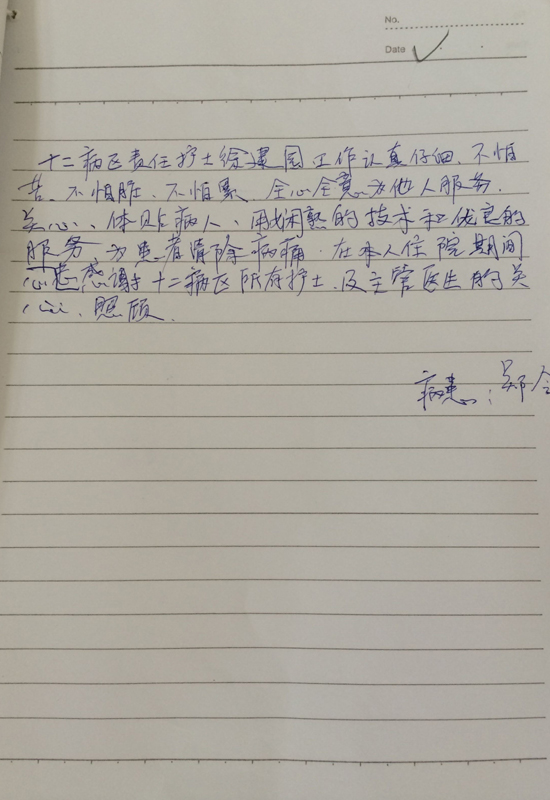 No.
Date
十二病区责任护士徐建园工作认真仔细、不怕
苦、不怕脏、不怕累、全心全意为他人服务.
关心、体贴病人、用娴熟的技术和优良的
服务 为患者清除病痛.在本人住院期间
感谢十二病区所有护士、及主管医生的关
心、照顾.
病患:郑全